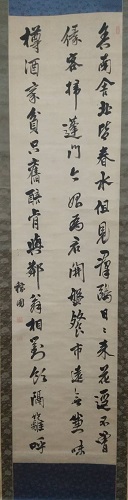 舍南舍北皆春水但見羣鷗日日來花逕不曾
緣客掃蓬門今始為君開盤飧市遠無兼味
樽酒家貧只舊醅肯與鄰翁相對飲隔籬呼